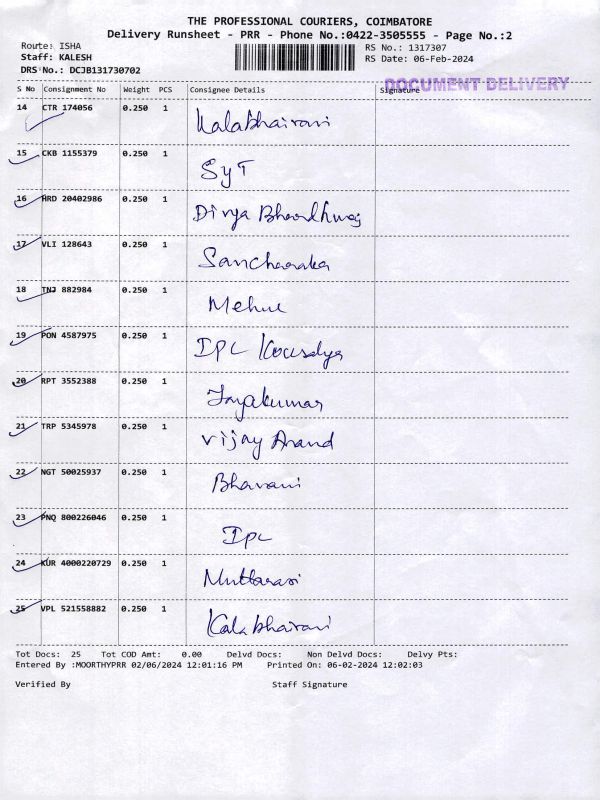 THE PROFESSIONAL COURIERS, COIMBATORE
Delivery Runsheet - PRR - Phone No.:0422-3505555 - Page No.:2
Route: ISHA
RS No.: 1317307
Staff: KALESH
RS Date: 06-Feb-2024
DRS No.: DCJB131730702
DOCUMENT DELIVERY
S No Consignment No Weight PCS Consignee Details Signature
14 CTR 174056 0.250 1 Kalabhairavi
15 CKB 1155379 0.250 1 SyT
16 HRD 20402986 0.250 1 Divya Bhardhwaj
17 VLI 128643 0.250 1
18 TNJ 882984 0.250 1 Mehul
19 PON 4587975 0.250 1 IPC Kousalya
20 RPT 3552388 0.250 1 Jayakumar
21 TRP 5345978 0.250 1 Vijay Anand
22 NGT 50025937 0.250 1 Bhavani
23 PNQ 800226046 0.250 1 IPC
24 KUR 4000220729 0.250 1 Muttarasi
25 VPL 521558882 0.250 1 Kalabhairavi
Tot Docs: 25 Tot COD Amt: 0.00 Delvd Docs: Non Delvd Docs: Delvy Pts:
Entered By :MOORTHYPRR 02/06/2024 12:01:16 PM Printed On: 06-02-2024 12:02:03
Verified By Staff Signature